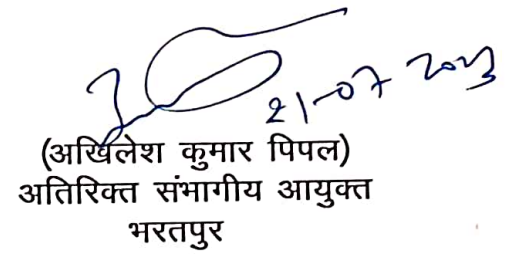 21-07 2023
(अखिलेश कुमार पिपल)
अतिरिक्त संभागीय आयुक्त
भरतपुर